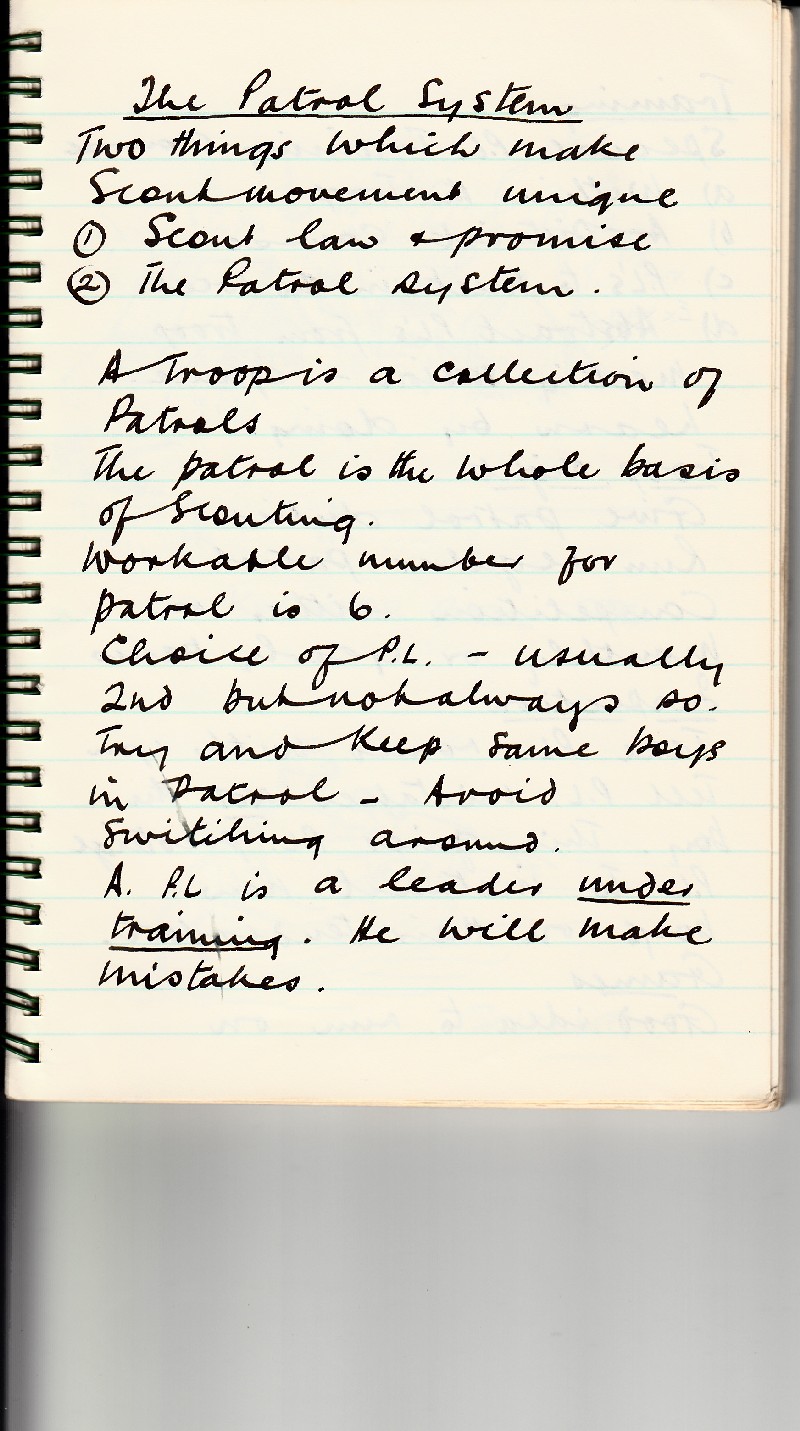 The Patrol System
Two things which make
Scout movement unique
① Scout law & promise
② The Patrol system.
A Troop is a collection of
Patrols
The patrol is the whole basis
of Scouting.
Workable number for
patrol is 6.
Choice of P.L. - usually
2nd but not always so.
Try and keep same boys
in Patrol - Avoid
switching around.
A. P.L is a leader under
training. He will make
mistakes.